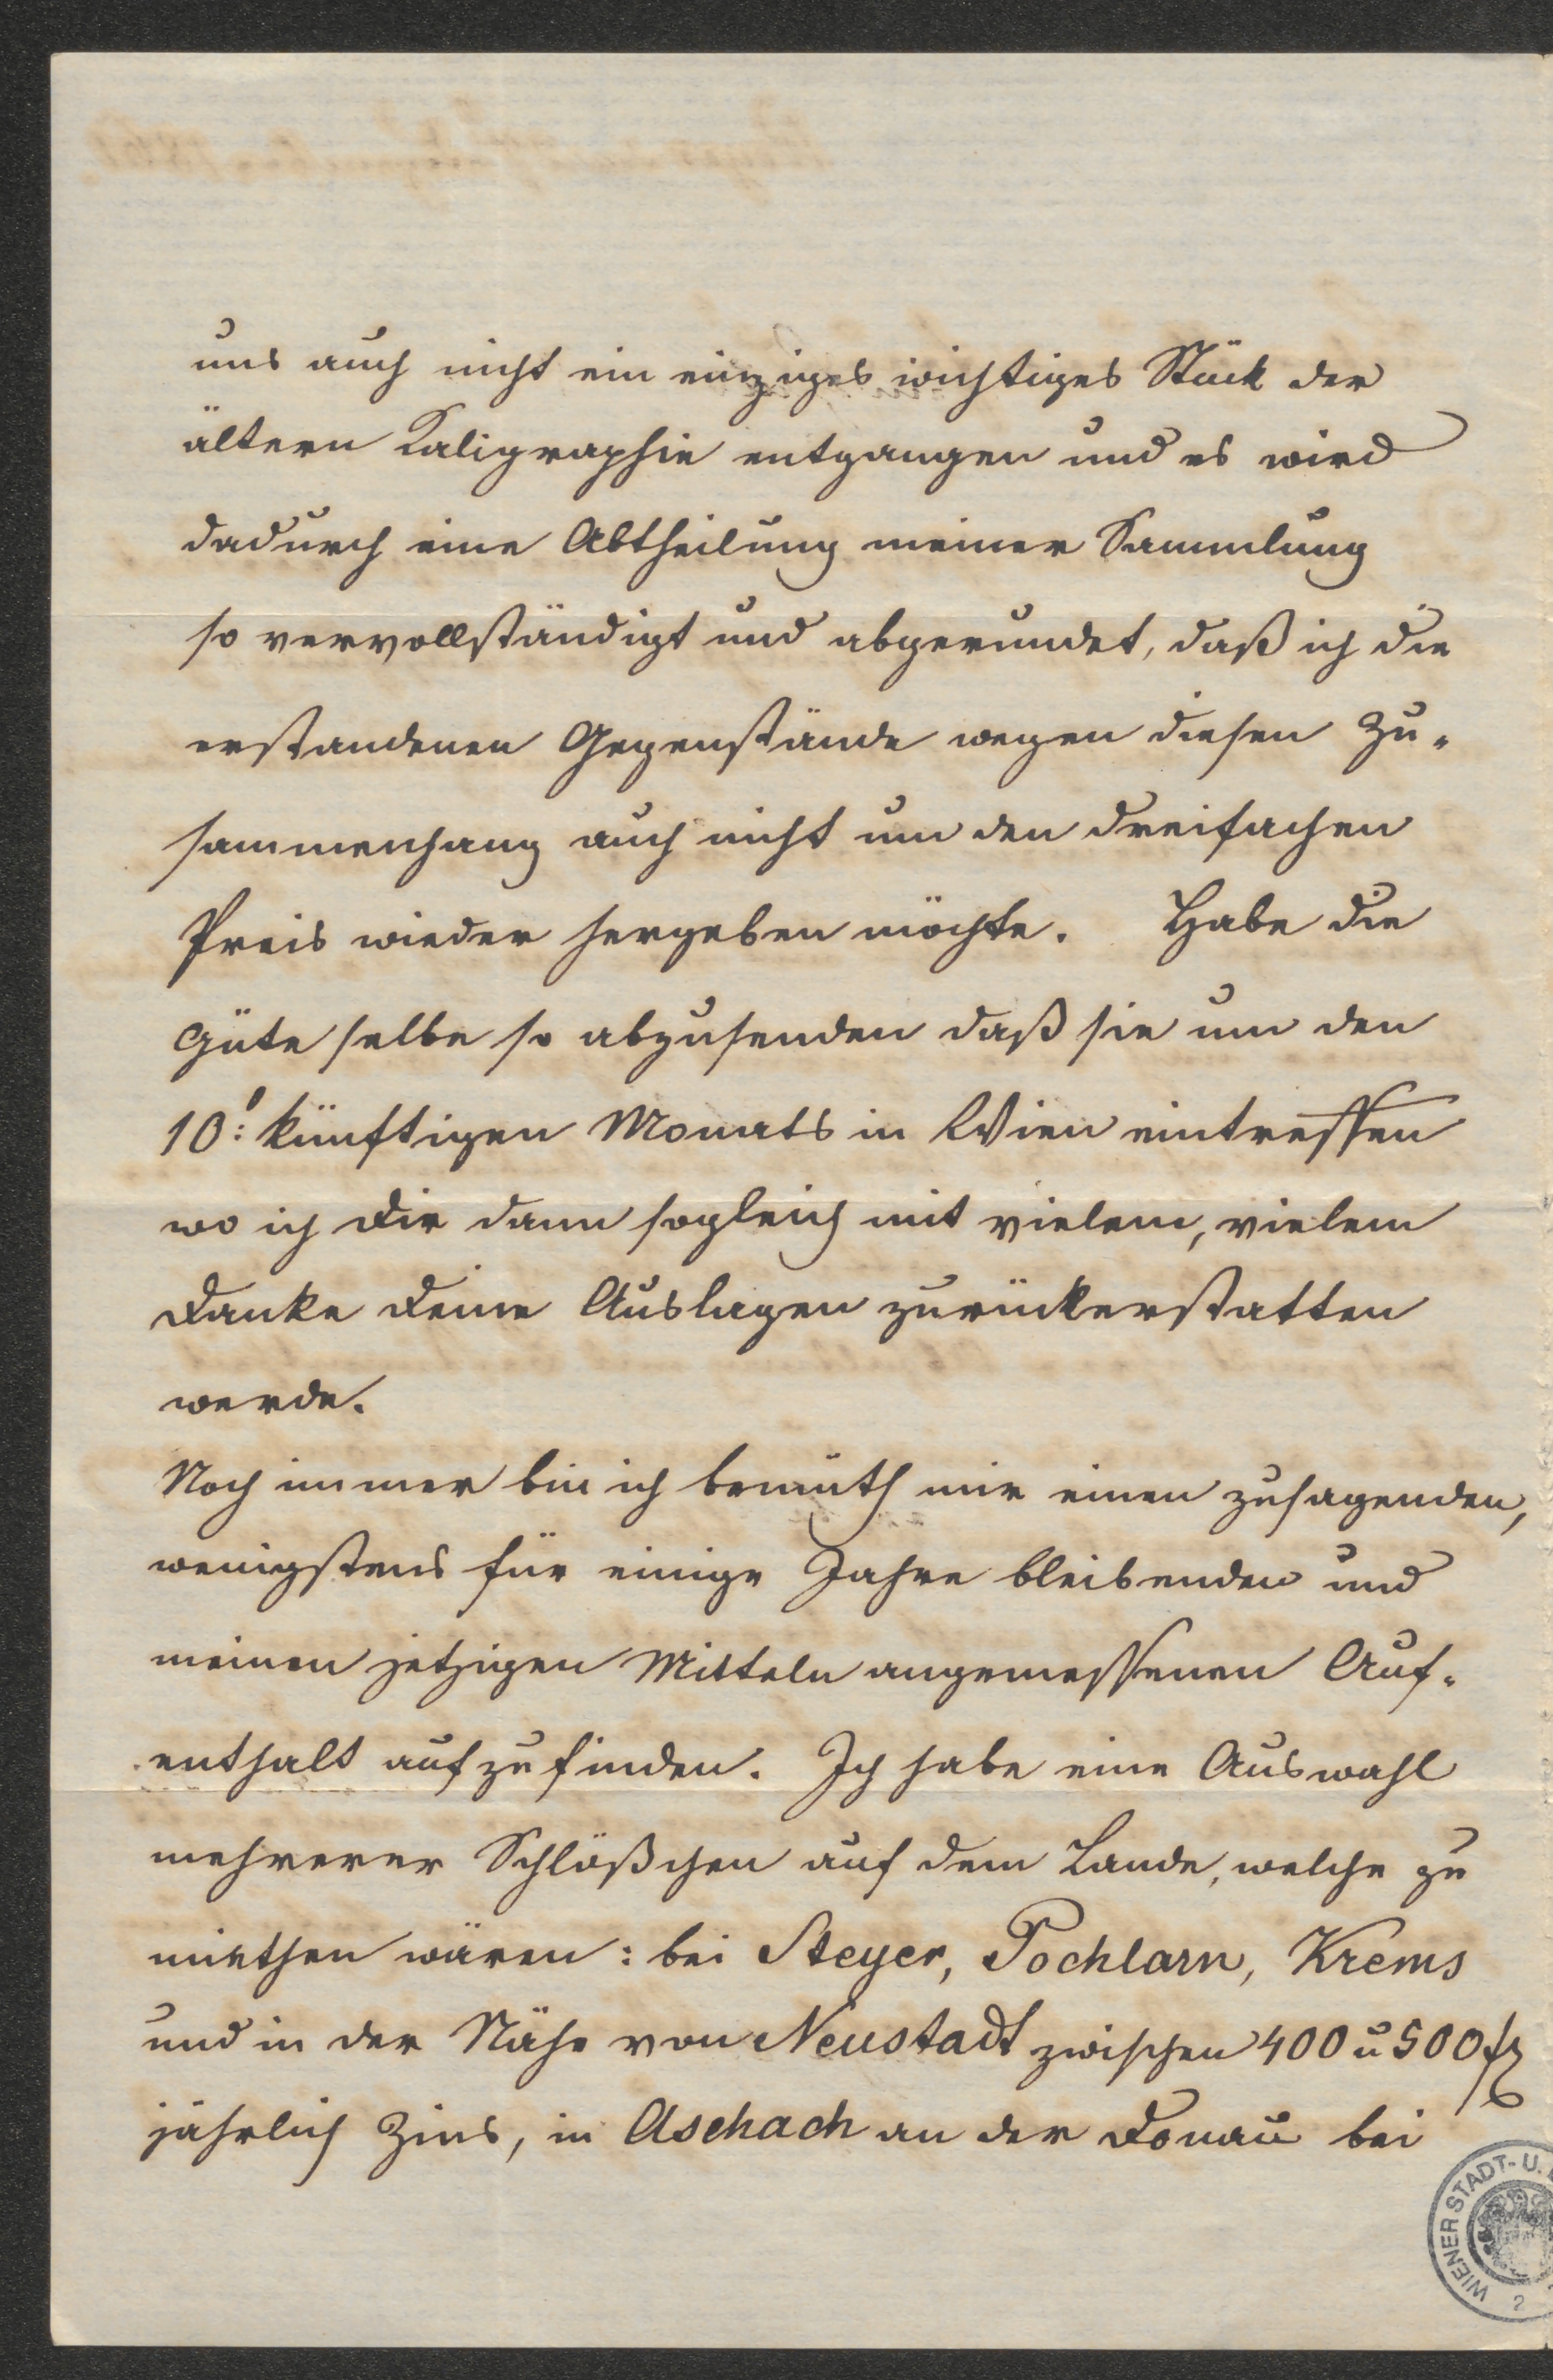 uns auch nicht ein einziges wichtiges Stück der
ältern Kaligraphie entgangen und es wird
dadurch eine Abtheilung meiner Sammlung
so vervollständigt und abgerundet, daß ich die
erstandenen Gegenstände wegen diesen Zu-
sammenhang auch nicht um den dreifachen
Preis wieder hergeben möchte. Habe die
Güte selbe so abzusenden daß sie um den
10: künftigen Monats in Wien eintreffen
wo ich Dir dann sogleich mit vielem, vielem
Danke Deine Auslagen zurückerstatten
werde.
Noch immer bin ich bemüth mir einen zusagenden,
wenigstens für einige Jahre bleibenden und
meinen jetzigen Mitteln angemessenen Auf-
enthalt aufzufinden. Ich habe eine Auswahl
mehrerer Schlößchen auf dem Lande, welche zu
miethen wären: bei Steyer, Pochlarn, Krems
und in der Nähe von Neustadt zwischen 400 u 500 fl
jährlich Zins, in Aschach an der Donau bei
WIENER STADT- U.
2